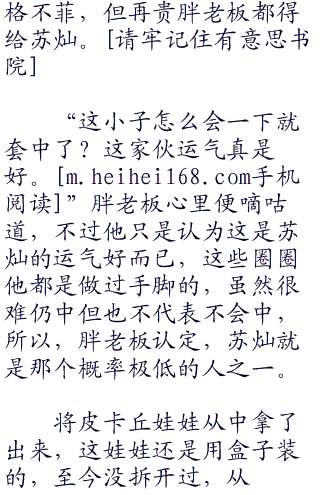 格不菲，但再贵胖老板都得
给苏灿。[请牢记住有意思书
院]
“这小子怎么会一下就
套中了？这家伙运气真是
好。[m.heihei168.com手机
阅读]”胖老板心里便嘀咕
道，不过他只是认为这是苏
灿的运气好而已，这些圈圈
他都是做过手脚的，虽然很
难仍中但也不代表不会中，
所以，胖老板认定，苏灿就
是那个概率极低的人之一。
将皮卡丘娃娃从中拿了
出来，这娃娃还是用盒子装
的，至今没拆开过，从